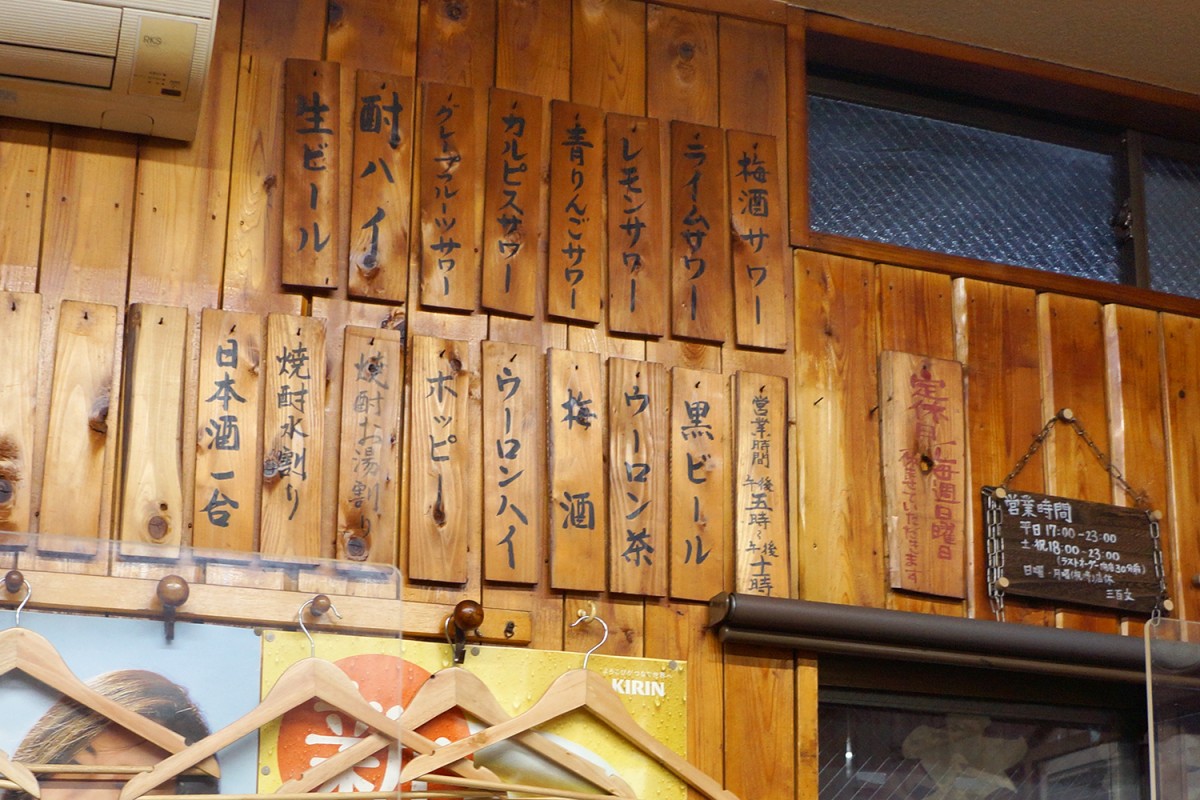 梅酒サワー
ライムサワー
レモンサワー
青りんごサワー
カルピスサワー
グレープフルーツサワー
酎ハイ
生ビール
営業時間 午後五時〜午後十時
黒ビール
ウーロン茶
梅酒
ウーロンハイ
ホッピー
焼酎お湯割り
焼酎水割り
日本酒一合
定休日/毎週日曜日
休ませていただきます
営業時間
平日 17:00-23:00
土・祝 18:00-23:00
日曜・月曜(祝時)店休
三百文
KIRIN
RKS